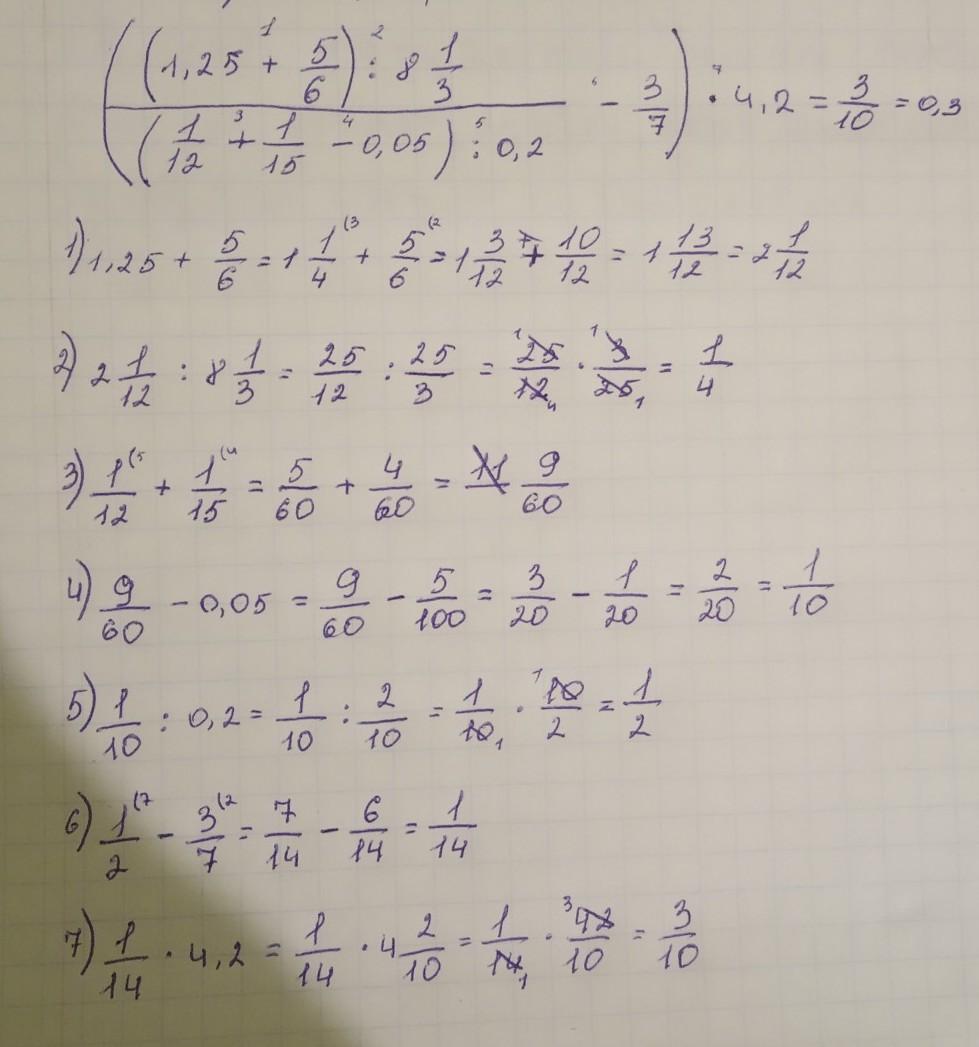 (((1,25 + 5/6) : 8 1/3) / ((1/12 + 1/15 - 0,05) : 0,2) - 3/7) · 4,2 = 3/10 = 0,3
1) 1,25 + 5/6 = 1 1/4 + 5/6 = 1 3/12 + 10/12 = 1 13/12 = 2 1/12
2) 2 1/12 : 8 1/3 = 25/12 : 25/3 = 25/12 · 3/25 = 1/4
3) 1/12 + 1/15 = 5/60 + 4/60 = 9/60
4) 9/60 - 0,05 = 9/60 - 5/100 = 3/20 - 1/20 = 2/20 = 1/10
5) 1/10 : 0,2 = 1/10 : 2/10 = 1/10 · 10/2 = 1/2
6) 1/2 - 3/7 = 7/14 - 6/14 = 1/14
7) 1/14 · 4,2 = 1/14 · 4 2/10 = 1/14 · 42/10 = 3/10